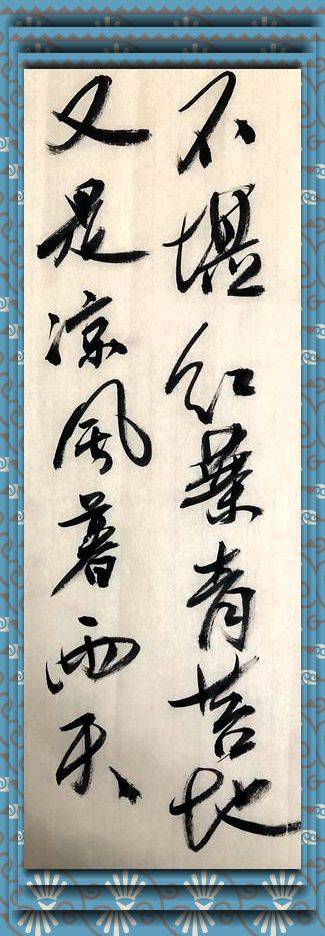 不堪红葉青苔地
又是凉風暮雨天